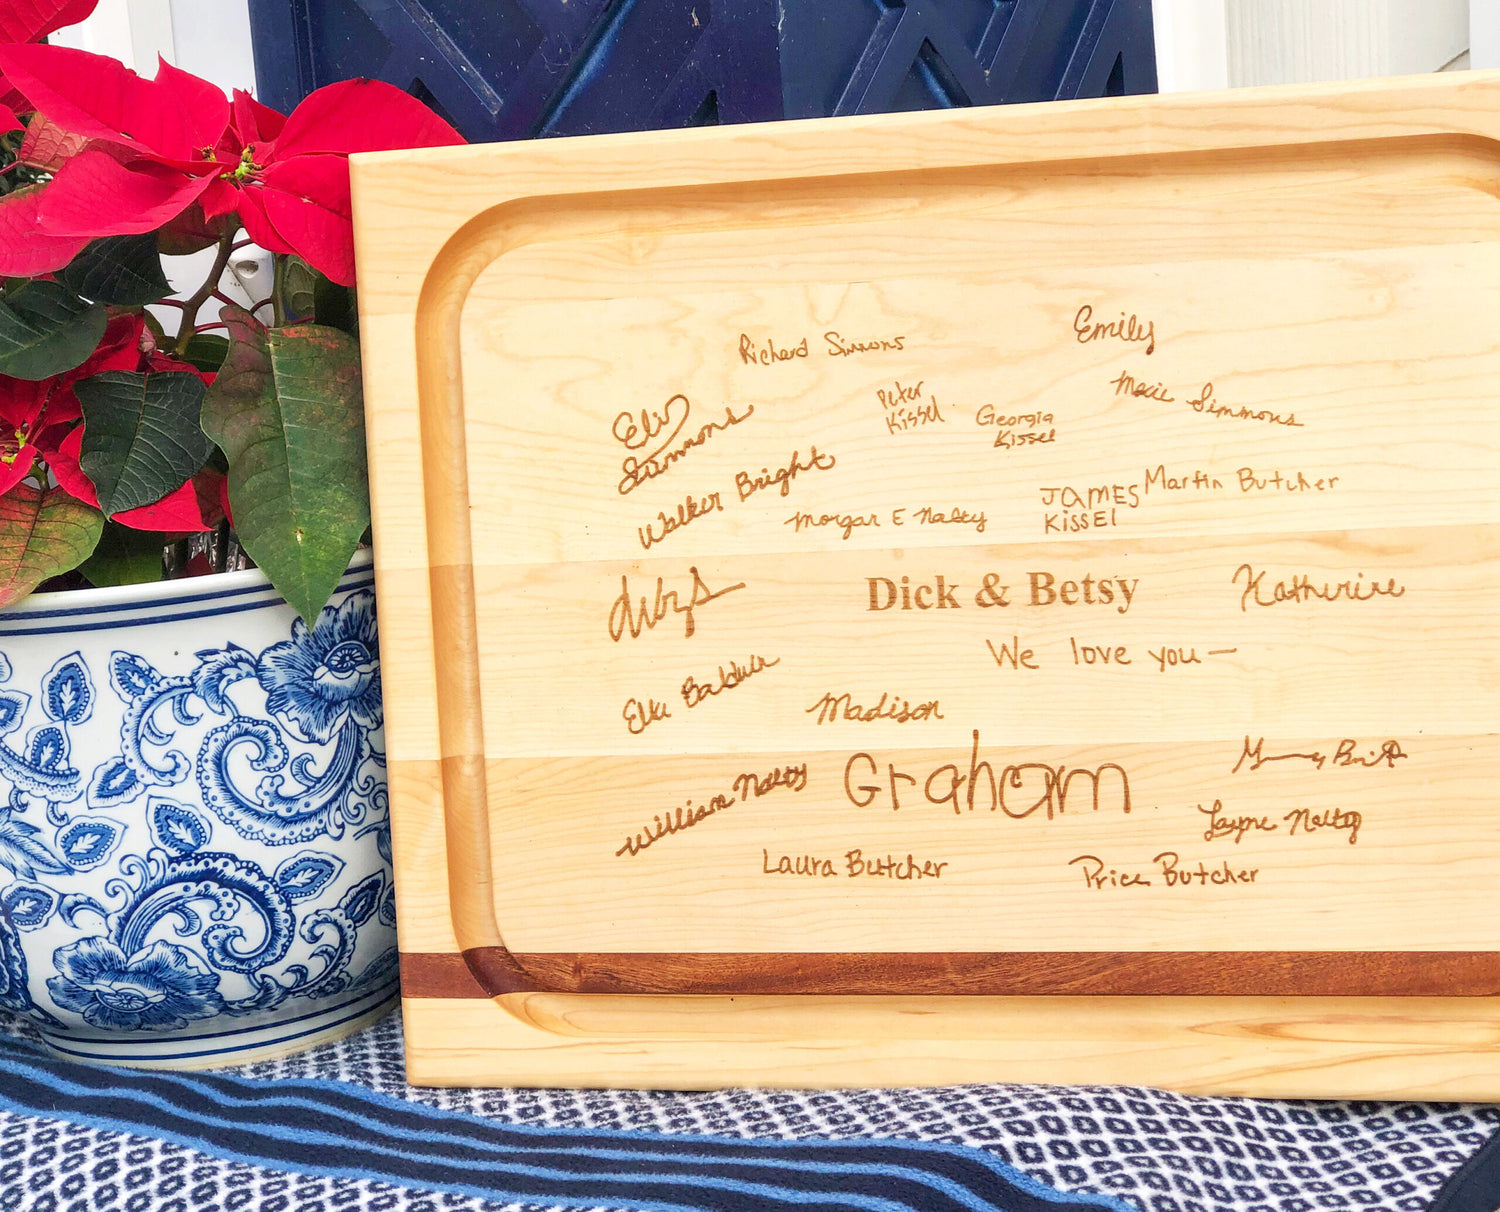 Richard Simmons
Emily
Macie Simmons
Peter
Kissel
Georgia
Kissel
Eli
Simmons
Walker Bright
Morgan E Nalty
JAMES
Kissel
Martin Butcher
Dick & Betsy
Katherine
We love you—
Elki Baldwin
Madison
William Nalty
Graham
Layne Nalty
Laura Butcher
Price Butcher